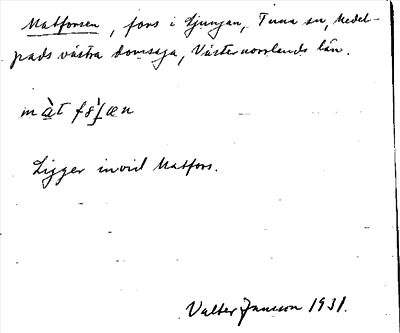 Matforsen, fors i Ljungan, Tuna sn, Medel-
pads västra domsaga, Västernorrlands län.
Ligger invid Matfors.
Valter Jansson 1931.